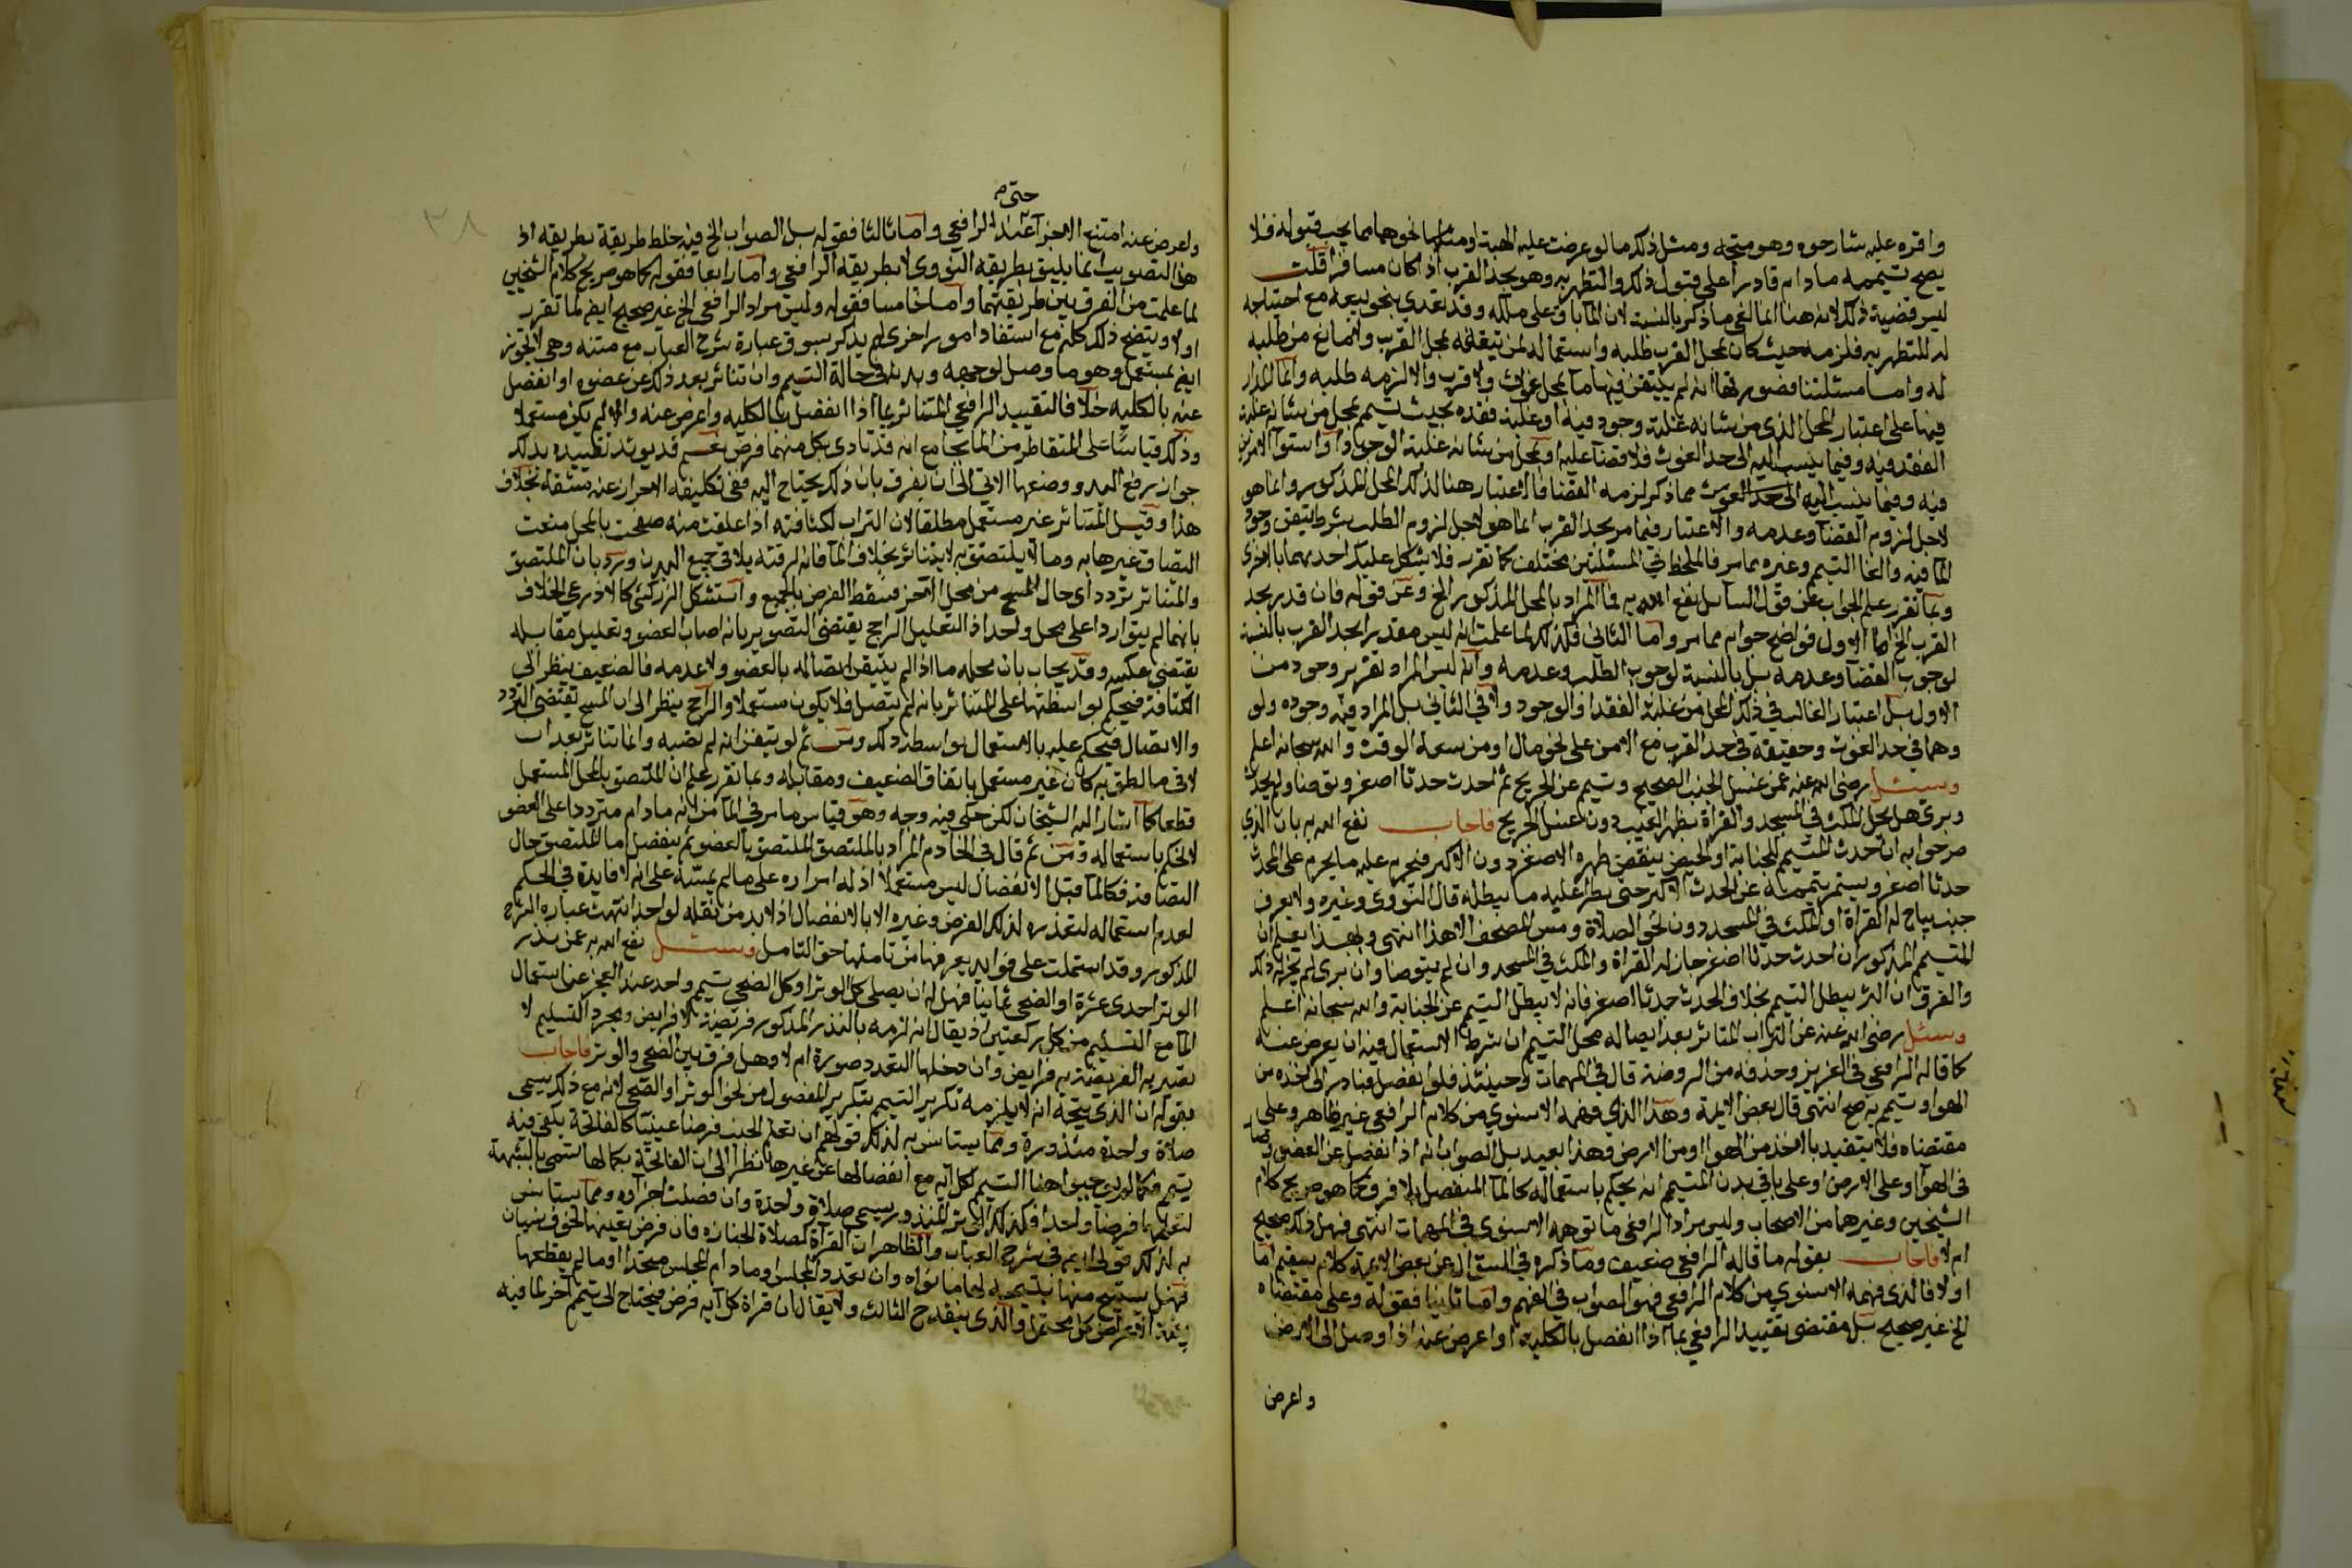 واقره عليه شارحوه وهو متجه ومثل ذلك ما لو عرضت عليه الهبة او منها نحوهما مما يجب قبوله فلا
يصح تيممه ما دام قادرا على قبول ذلك والتطهر به وهو بحد القرب اذا كان مسافرا قلت
ليس قضية ذلك لانه هنا انما لغي ما ذكر بالنسبة لان الماء باق على ملكه وقد تعدي بنحو بيعه مع احتياجه
له للتطهر به فلزمه حيث كان بمحل القرب طلبه واستعماله لمن تيقنه بمحل القرب ولا مانع من طلبه
له واما مسئلتنا فصورتها انه لم يتيقن فيها ماء بمحل غوث ولا قرب والا لزمه طلبه وانما المدار
فيها على اعتبار المحل الذي من شانه غلبة وجود فيه او غلبة فقده بحيث تيمم بمحل من شانه غلبة
الفقد فيه وفيما ينسب اليه الى حد الغوث فلا قضا عليه او بمحل من شانه غلبة الوجود او استوا الامرين
فيه وفيما ينسب اليه الى حد الغوث مما ذكر لزمه القضا فالاعتبار هنا لذلك المحل المذكور وانما هو
لاجل لزوم القضا وعدمه والاعتبار فيما مر بحد القرب انما هو لاجل لزوم الطلب بشرط تيقن وجود
الماء فيه والغا التيمم وغيره مما مر فالملحظ في المسئلتين مختلف كما تقرر فلا يشكل عليك احديهما بالاخرى
وبما تقرر علم الجواب عن قول السائل نفع الله به فما المراد بالمحل المذكور الخ وعن قوله فان قدر بحد
القرب الخ اما الاول فواضح جوابه مما مر واما الثاني فكذلك لما علمت انه ليس مقدرا بحد القرب بالنسبة
لوجوب القضا وعدمه بل بالنسبة لوجوب الطلب وعدمه وانه ليس المراد تقرير وجوده من
الاول بل اعتبار الغالب في ذلك المحل من غلبة الفقد او الوجود ولا في الثاني بل المراد فيه وجوده ولو
وهما في حد الغوث وحقيقة في حد القرب مع الامن على نحو مال او من سعة الوقت والله سبحانه اعلم
وسئل رضي الله عنه عمن غسل الجنب الصحيح وتيمم عن الجريح ثم احدث حدثا اصغر وتوضا ولم يحدث
وبرئ هل يحل المكث في المسجد والقراة بظهر الغيب دون غسل الجريح فاجاب نفع الله به بان الذي
صرحوا به ان حدث المتيمم للجنابة او الحيض ينقض طهره الاصغر دون الاكبر فيحرم عليه ما يحرم على المحدث
حدثا اصغر ويستمر تيممه عن الحدث الاكبر حتى يطرا عليه ما يبطله قال النووي وغيره ولا يعرف
جنب يباح له القراة او المكث في المسجد دون نحو الصلاة ومس المصحف الا هذا انتهى وبهذا يعلم ان
المتيمم المذكور ان احدث حدثا اصغر جاز له القراة والمكث في المسجد وان لم يتوضا وان برئ لم يجز له ذلك
والفرق ان البرء يبطل التيمم بخلاف الحدث حدثا اصغر فانه لا يبطل التيمم عن الجنابة والله سبحانه اعلم
وسئل رضي الله عنه عن التراب المتناثر بعد ايصاله محل التيمم ان شرط الاستعمال فيه ان يعرض عنه
كما قاله الرافعي في العزيز وحذفه من الروضة قال في المهمات وحينئذ فلو انفصل فبادر الى اخذه من
الهوا وتيمم به صح انتهى قال بعض الايمة وهذا الذي فهمه الاسنوي من كلام الرافعي غير ظاهر وعلى
مقتضاه فلا يتقيد بالاخذ من الهوا او من الارض فهذا بعيد بل الصواب انه اذا انفصل عن العضو وصار
في الهوا او على الارض او على باقي بدن المتيمم انه يحكم باستعماله كالماء المنفصل بلا فرق كما هو صريح كلام
الشيخين وغيرهما من الاصحاب وليس مراد الرافعي ما توهمه الاسنوي في المهمات انتهى فهل ذلك صحيح
ام لا فاجاب بقوله ما قاله الرافعي ضعيف وما ذكره في السؤال عن بعض الايمة كلام سقيم اما
اولا فالذي فهمه الاسنوي من كلام الرافعي فهو الصواب في الفهم واما ثانيا فقوله وعلى مقتضاه
الخ غير صحيح بل مقتضى تقييد الرافعي بما اذا انفصل بالكلية او اعرض عنه اذا وصل الى الارض
واعرض
٣٨
حتى م
واعرض عنه امتنع الاجزا عند الرافعي واما ثالثا فقوله بل الصواب الخ فيه خلط طريقة بطريقة اذ
هذا التصويب انما يليق بطريقة النووي لا بطريقة الرافعي واما رابعا فقوله كما هو صريح كلام الشيخين
لما علمت من الفرق بين طريقتهما واما خامسا فقوله وليس مراد الرافعي الخ غير صحيح ايضا لما تقرر
اولا ويتضح ذلك كله مع استفادة امور اخرى لم يذكر بسوق عبارة شرح العباب مع متنه وهي لا يجوز
ايضا بمستعمل وهو ما وصل لوجهه ويديه في حالة التيمم وان تناثر بعد ذلك عن عضوه او انفصل
عنه بالكلية خلافا لتقييد الرافعي المتناثر بما اذا انفصل بالكلية واعرض عنه والا لم يكن مستعملا
وذلك قياسا على المتقاطر من الماء بجامع انه قد تادى بكل منهما فرض نعم قد يويد تقييده بذلك
جواز رفع اليد ووضعها الاتي الا ان يفرق بان ذلك يحتاج اليه ففي تكليفه الاحتراز عنه مشقة بخلاف
هذا وقيل المتناثر غير مستعمل مطلقا لان التراب لكثافته اذا علقت منه صفحة بالمحل منعت
التصاق غيرها به وما لا يلتصق به لا يتناثر بخلاف الماء فانه لرقته يلاقي جميع البدن ويرد بان الملتصق
والمتناثر تردد اي حال المسح من محل لاخر فسقط الفرض بالجميع واستشكل الزركشي كالاذرعي الخلاف
بانهما لم يتواردا على محل واحد اذ التعليل الراجح يقتضي التصوير بانه اصاب العضو وتعليل مقابله
يقتضي عكسه وقد يجاب بان محله ما اذا لم يتيقن ايصاله بالعضو ولا عدمه فالضعيف ينظر الى
الكثافة فيحكم بواسطتها على المتناثر بانه لم يتصل فلا يكون مستعملا والراجح ينظر الى ان المسح يقتضي التردد
والايصال فيحكم عليه بالاستعمال بواسطة ذلك ومن ثم لو تيقن انه لم يصبه وانما تناثر بعد ان
لاقى ما لصق به كان غير مستعمل باتفاق الضعيف ومقابله وبما تقرر علم ان الملتصق بالمحل المستعمل
قطعا كما اشار اليه الشيخان لكن حكي فيه وجه وهو قياس ما مر في الماء من انه ما دام مترددا على العضو
لا يحكم باستعماله ومن ثم قال في الخادم المراد بالملتصق الملتصق بالعضو ثم ينفصل اما الملتصق حال
التصاقه فكالماء قبل الانفصال ليس مستعملا اذ له امراره على ما لم يمسه على انه لا فايدة في الحكم
لعدم استعماله لتعذره لذلك الفرض وغيره الا بالانفصال اذ لابد من نقله لواحد انتهت عبارة الشرح
المذكور وقد اشتملت على فوايد يعرفها من تاملها حق التامل وسئل نفع الله به عمن نذر
الوتر احدى عشرة او الضحى ثمانيا فهل له ان يصلي كل الوتر او كل الضحى بتيمم واحد عند العجز عن استعمال
الماء مع التسليم من كل ركعتين اذ يقال انه لزمه بالنذر المذكور فريضة لا فرايض ومجرد التسليم لا
تصير به الفريضة به فرايض وان دخلها التعدد صورة ام لا وهل فرق بين الضحى والوتر فاجاب
بقوله ان الذي يتجه انه لا يلزمه تكرير التيمم بتكرير المفصول من نحو الوتر او الضحى لانه مع ذلك يسمى
صلاة واحدة منذورة ومما يستانس به لذلك قولهم ان تعلم الجنب فرضا عينيا كالفاتحة يكفي فيه
تيمم فكما لم يوجبوا هنا التيمم لكل اية مع انفصالها عن غيرها نظرا الى ان الفاتحة بكمالها تسمى بالنسبة
لتعليمها فرضا واحدا فكذلك الوتر المنذور يسمى صلاة واحدة وان فصلت اجزاوه ومما يستانس
به لذلك قولي ايضا في شرح العباب والظاهر ان القرآة كصلاة الجنازة فان فرض تعينها لخوف نسيان
فهل يستبيح منها بتيممه لها ما نواه وان تعدد المجلس او ما دام المجلس متحدا او ما لم يقطعها
بنية الاعراض كل محتمل والذي ينقدح الثالث ولا يقال ان قراة كل اية فرض فيحتاج الى تيمم آخر لما فيه